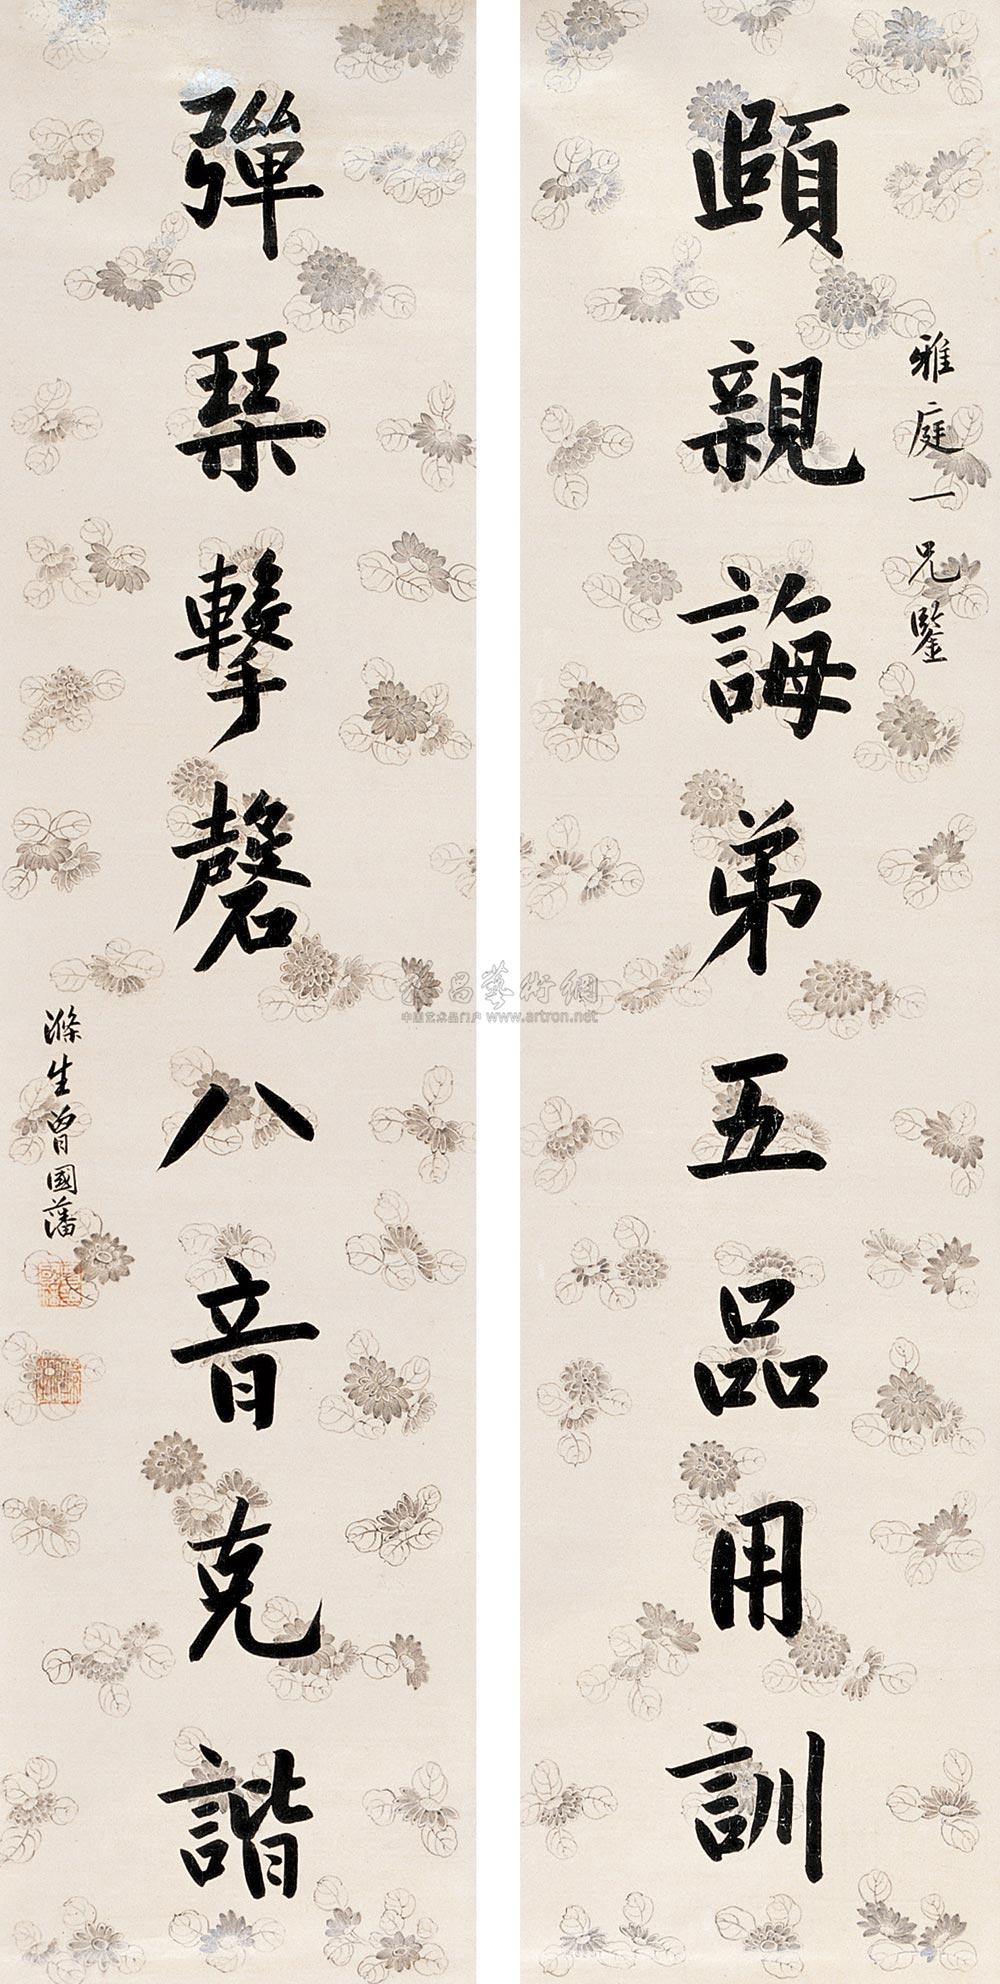 雅庭一兄鑒
頤親誨弟五品用訓
彈琴擊磬八音克諧
滌生曾國藩
雅昌藝術網
中国艺术品门户 www.artron.net